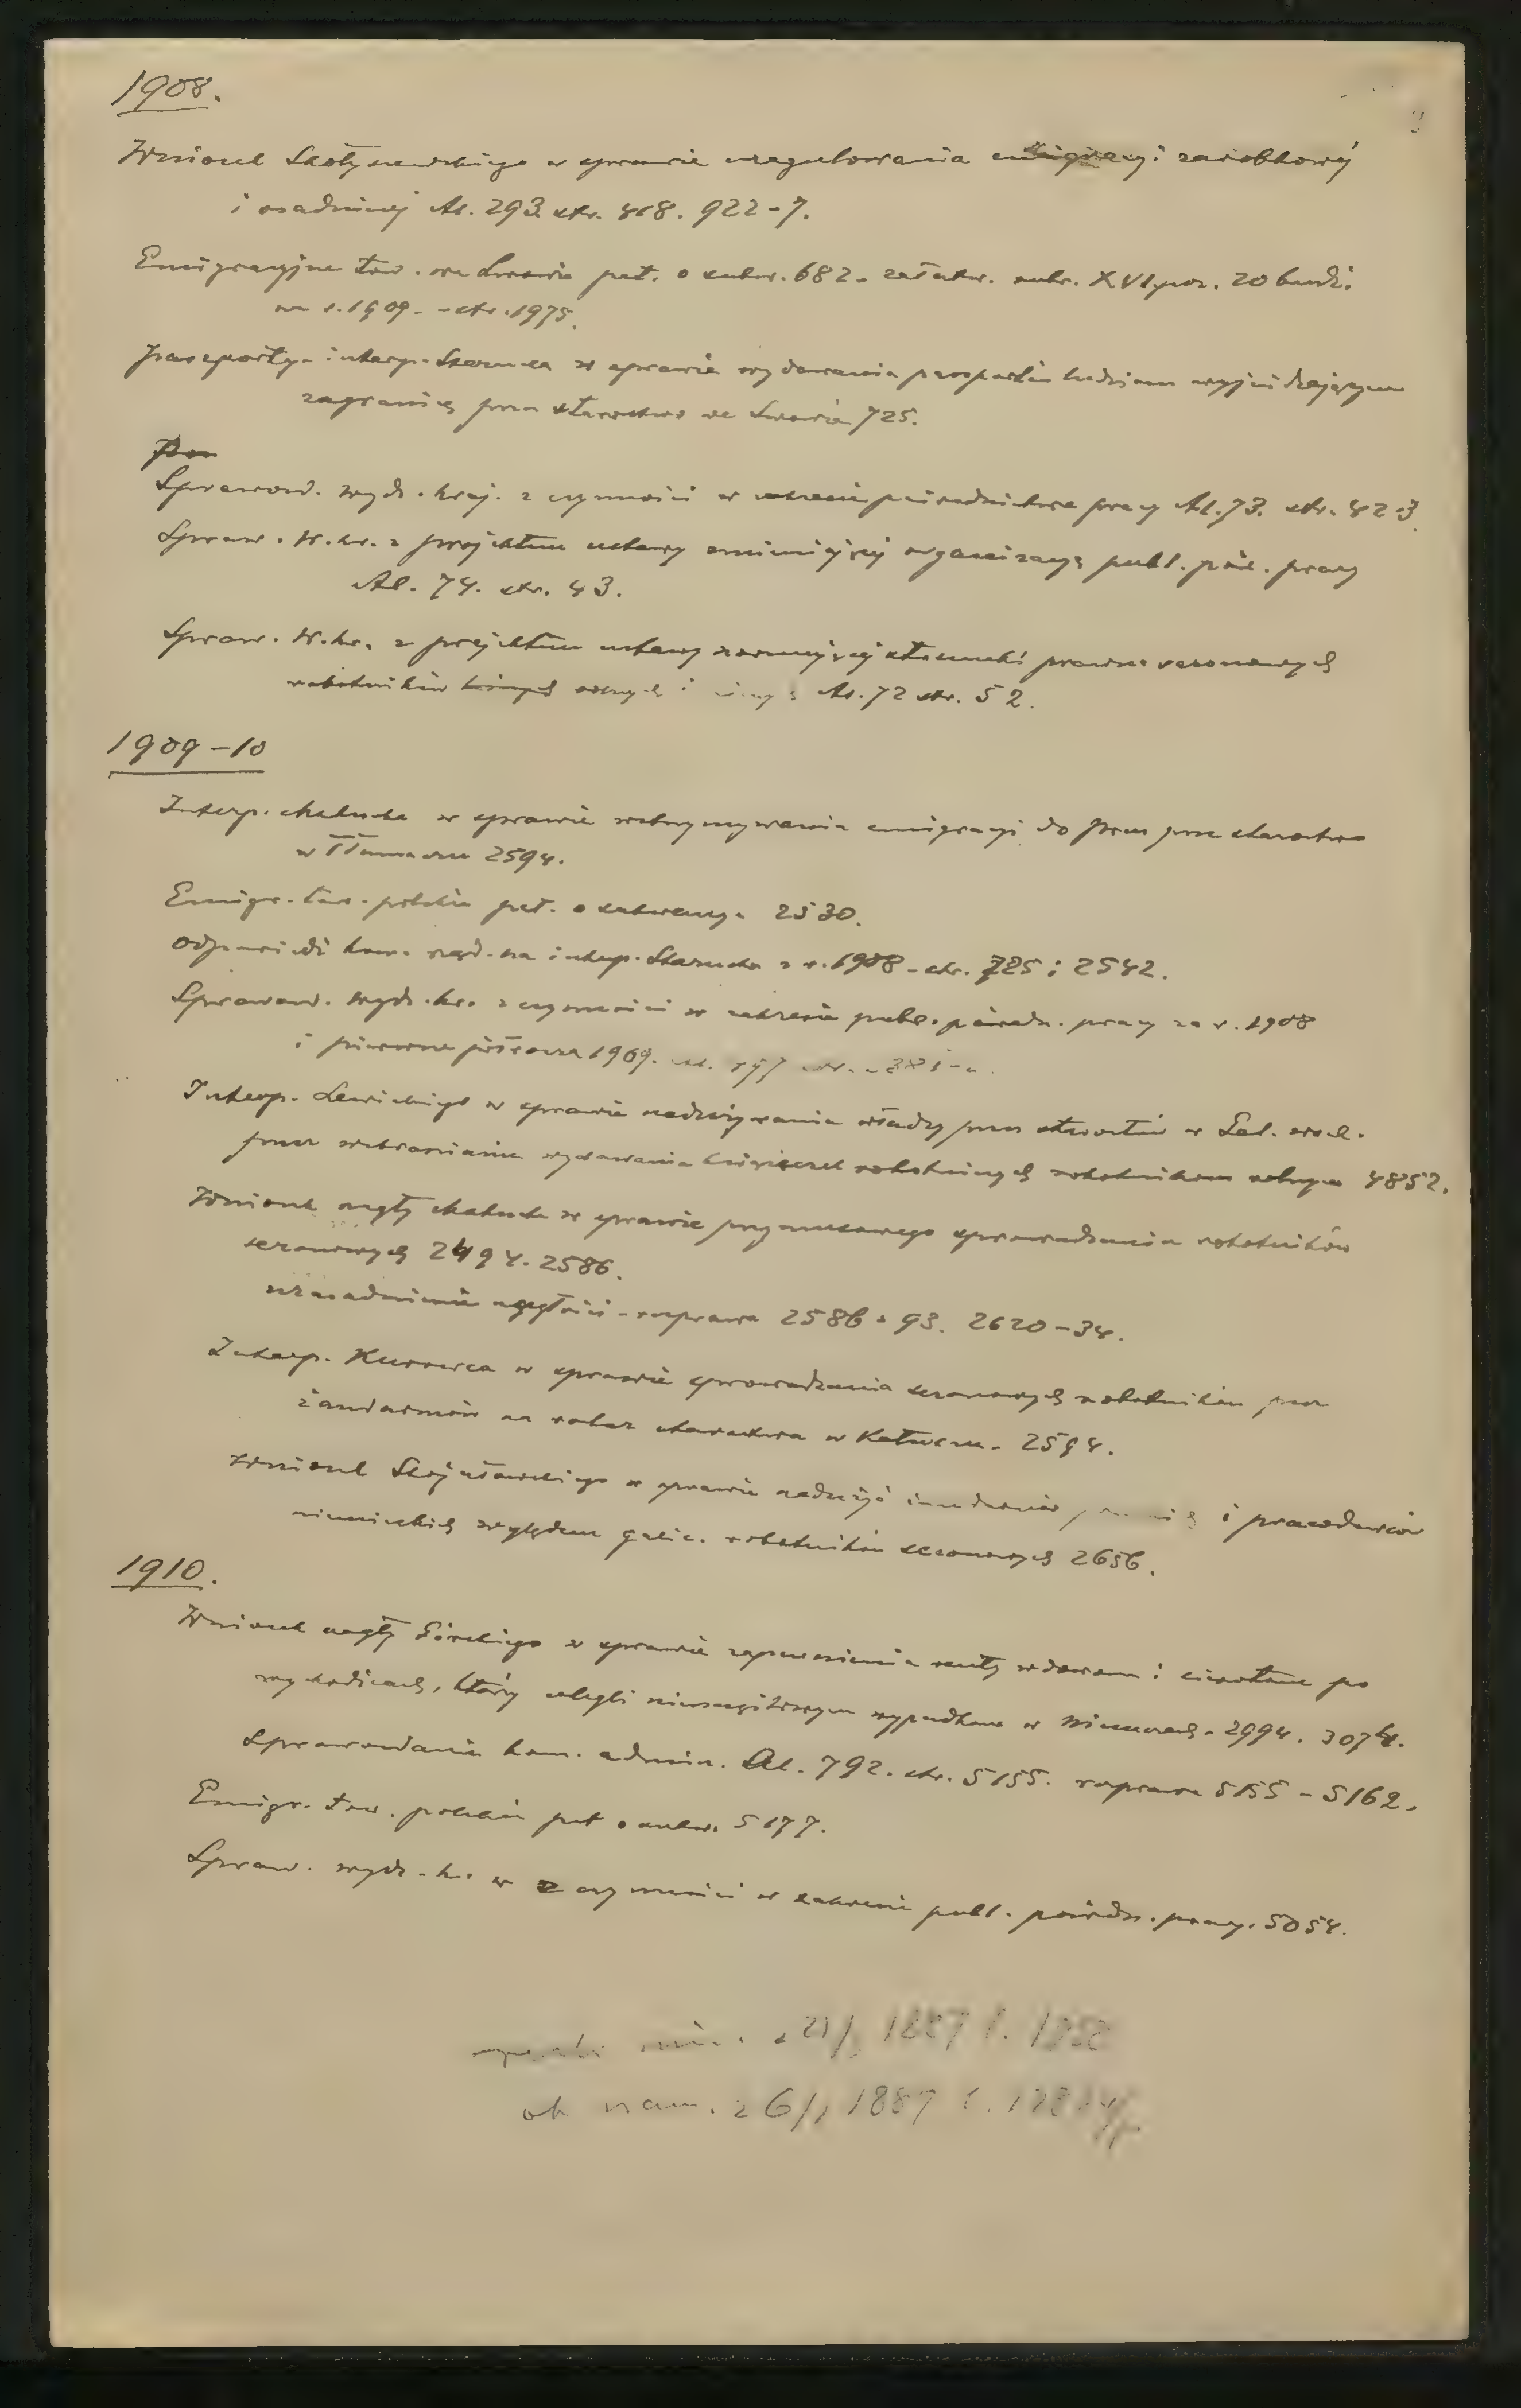 1908.
Wniosek Skołyszewskiego w sprawie uregulowania emigracyi zarobkowej
i osadniczej Al. 293. str. 418. 922-7.
Emigracyjne tow. we Lwowie pet. o subw. 682. załatw. rubr. XVI. poz. 20 budż.
na r. 1909. - str. 1975.
Paszporty - interp. Starucha w sprawie wydawania paszportów ludziom wyjeżdżającym
zagranicę przez starostwo we Lwowie 725.
Sprawozd. wydz. kraj. z czynności w zakresie pośrednictwa pracy Al. 73. str. 42-3.
Spraw. W. kr. z projektem ustawy zmieniającej organizacyę publ. poś. pracy
Al. 74. str. 43.
Spraw. W. kr. z projektem ustawy normującej stosunki prawne sezonowych
robotników rolnych i Al. 72 str. 52.
1909-10
Interp. Makucha w sprawie wstrzymywania emigracyi do Prus przez starostwo
w Tłumaczu 2594.
Emigr. tow. polskie pet. o subwencyę 2530.
Odpowiedź kom. rząd. na interp. Starucha z r. 1908 - str. 725 i 2542.
Sprawozd. wydz. kr. z czynności w zakresie publ. pośredn. pracy za r. 1908
i pierwsze półrocze 1909.
Interp. Lewickiego w sprawie nadużywania władzy przez starostów w Gal. wsch.
przez wzbranianie wydawania książeczek robotniczych robotnikom rolnym 4852.
Wniosek nagły Makucha w sprawie przymusowego sprowadzania robotników
sezonowych 2494. 2586.
uzasadnienie nagłości - rozprawa 2586-93. 2620-34.
Interp. Kurowca w sprawie sprowadzania sezonowych robotników przez
żandarmów na rozkaz starostwa w Kałuszu - 2594.
Wniosek Stojałowskiego w sprawie nadużyć i pracodawców
niemieckich względem galic. robotników sezonowych 2656.
1910.
Wniosek nagły Górskiego w sprawie zapewnienia renty wdowom i sierotom po
wychodźcach, którzy ulegli nieszczęśliwym wypadkom w Niemczech - 2994. 3074.
Sprawozdanie kom. admin. Al. 792. str. 5155. rozprawa 5155-5162.
Emigr. tow. polskie pet. o subw. 5177.
Spraw. wydz. kr. w z czynności w zakresie publ. pośredn. pracy. 5054.
1887
ok nam. z 6/1 1887